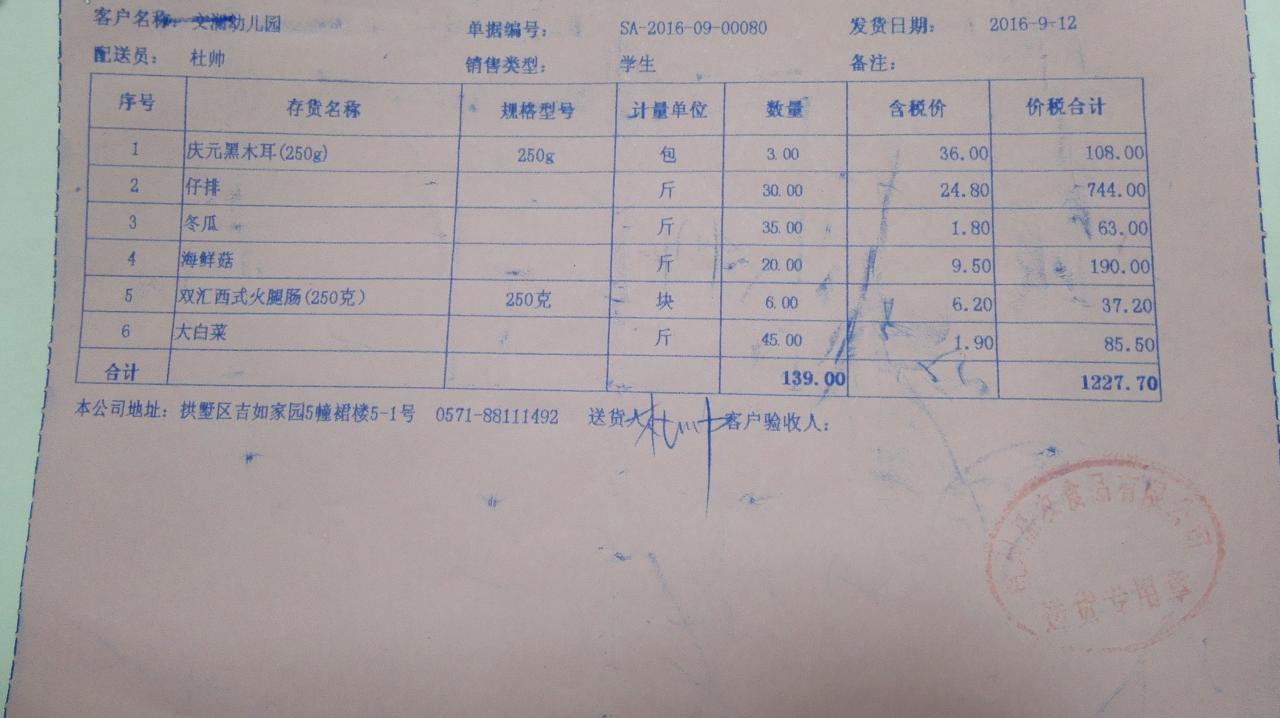 客户名称：文澜幼儿园 单据编号： SA-2016-09-00080 发货日期： 2016-9-12
配送员： 杜帅 销售类型： 学生 备注：
序号 存货名称 规格型号 计量单位 数量 含税价 价税合计
1 庆元黑木耳(250g) 250g 包 3.00 36.00 108.00
2 仔排 斤 30.00 24.80 744.00
3 冬瓜 斤 35.00 1.80 63.00
4 海鲜菇 斤 20.00 9.50 190.00
5 双汇西式火腿肠(250克) 250克 块 6.00 6.20 37.20
6 大白菜 斤 45.00 1.90 85.50
合计 139.00 1227.70
本公司地址：拱墅区吉如家园5幢裙楼5-1号 0571-88111492 送货人 客户验收人：
食品有限公司
送货专用章